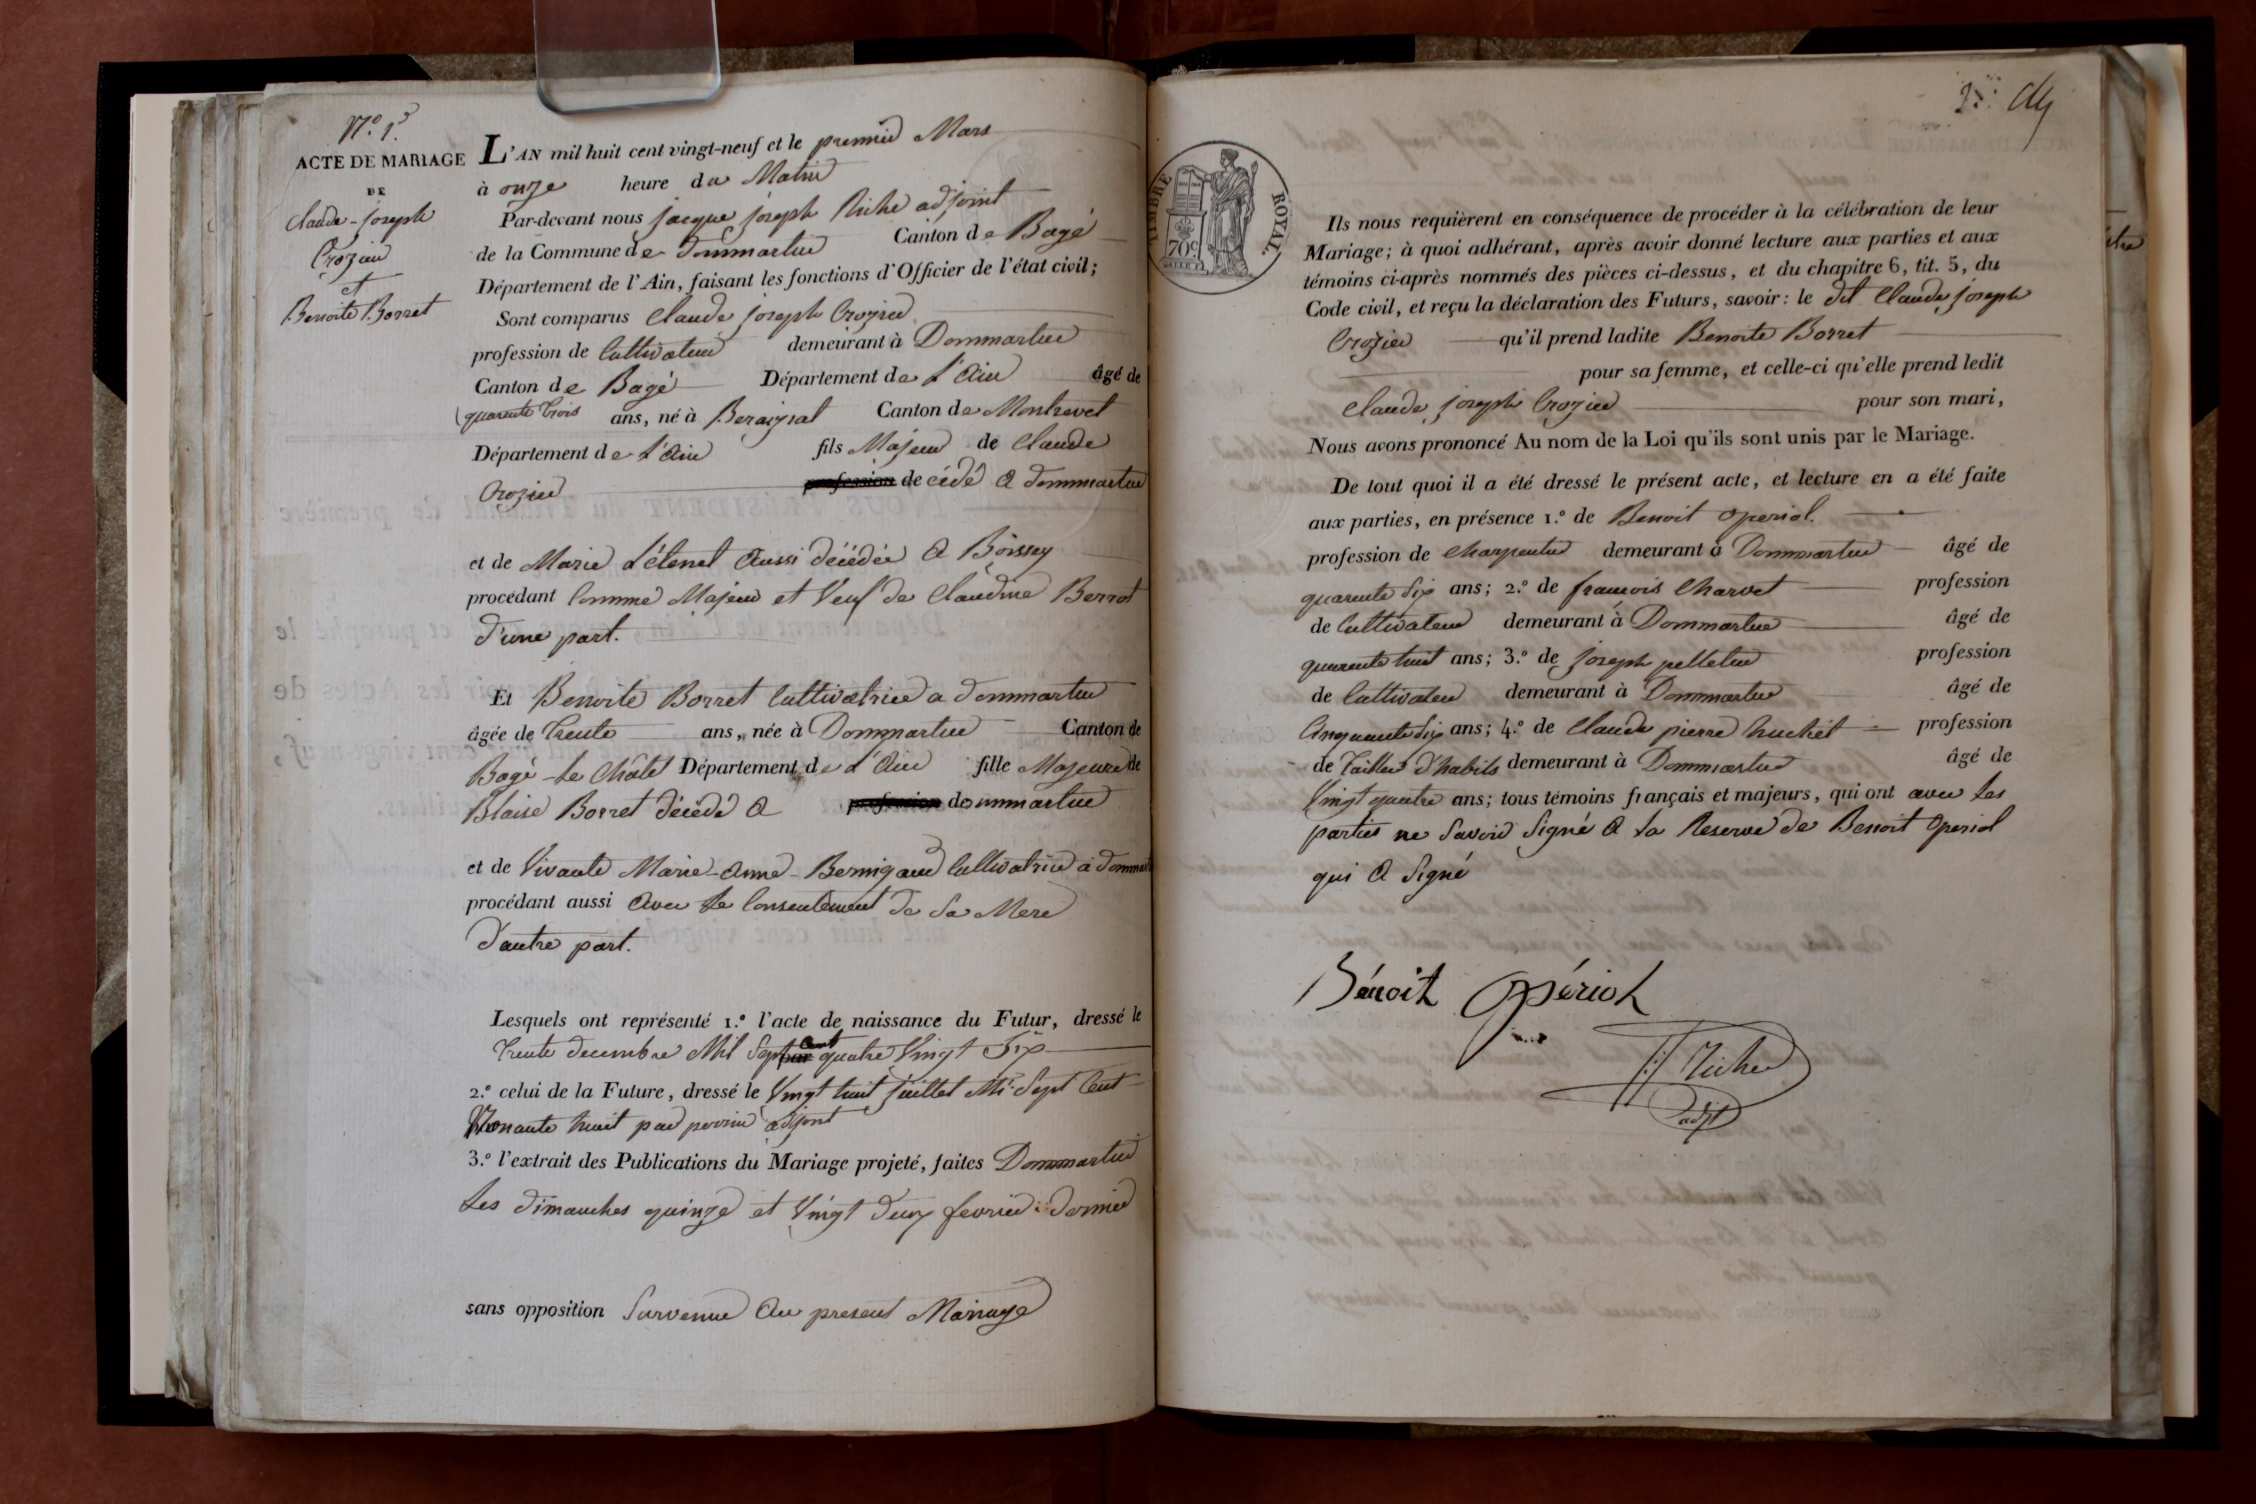 N.º 13
ACTE DE MARIAGE
DE
Claude-joseph
Crozier
et
Benoite Borret
L'AN mil huit cent vingt-neuf et le premier Mars
à onze heure du Matin
Par-devant nous jacque joseph Riche adjoint
de la Commune de Dommartin Canton de Bagé
Département de l'Ain, faisant les fonctions d'Officier de l'état civil;
Sont comparus Claude joseph Crozier
profession de Cultivateur demeurant à Dommartin
Canton de Bagé Département de L'Ain âgé de
quarante trois ans, né à Beraiziat Canton de Montrevel
Département de L'Ain fils Majeur de Claude
Crozier profession de cédé a dommartin
et de Marie Létenet Aussi décédée a Boissey
procédant Comme Majeur et Veuf de Claudine Berrot
d'une part.
Et Benoite Borret Cultivatrice a dommartin
âgée de Trente ans, née à Dommartin Canton de
Bagé-le Châtel Département de L'Ain fille Majeure de
Blaise Borret décédé a profession dommartin
et de Vivante Marie-Anne-Bernigaud Cultivatrice a dommart
procédant aussi Avec Le Consentement de Sa Mere
d'autre part.
Lesquels ont représenté 1.º l'acte de naissance du Futur, dressé le
Trente decembre Mil Sept Cent quatre Vingt Six
2.º celui de la Future, dressé le Vingt huit juillet Mil Sept Cent
Nonante huit par perrin adjoint
3.º l'extrait des Publications du Mariage projeté, faites Dommartin
Les dimanches quinze et Vingt deux fevrier dernier
sans opposition Survenue Au present Mariage
TIMBRE ROYAL.
70c
Ils nous requièrent en conséquence de procéder à la célébration de leur
Mariage; à quoi adhérant, après avoir donné lecture aux parties et aux
témoins ci-après nommés des pièces ci-dessus, et du chapitre 6, tit. 5, du
Code civil, et reçu la déclaration des Futurs, savoir: le dit Claude joseph
Crozier qu'il prend ladite Benoite Borret
pour sa femme, et celle-ci qu'elle prend ledit
Claude joseph Crozier pour son mari,
Nous avons prononcé Au nom de la Loi qu'ils sont unis par le Mariage.
De tout quoi il a été dressé le présent acte, et lecture en a été faite
aux parties, en présence 1.º de Benoit Operiol
profession de Charpentier demeurant à Dommartin âgé de
quarante Six ans; 2.º de francois Charvet profession
de Cultivateur demeurant à Dommartin âgé de
quarante huit ans; 3.º de joseph pelletier profession
de Cultivateur demeurant à Dommartin âgé de
Cinquante Six ans; 4.º de Claude pierre huchet profession
de Tailleur d'habits demeurant à Dommartin âgé de
Vingt quatre ans; tous témoins français et majeurs, qui ont avec Les
parties ne Savoir Signé a La Reserve de Benoit Operiol
qui a Signé
Bénoit Opériol
JJ Riche
adjt